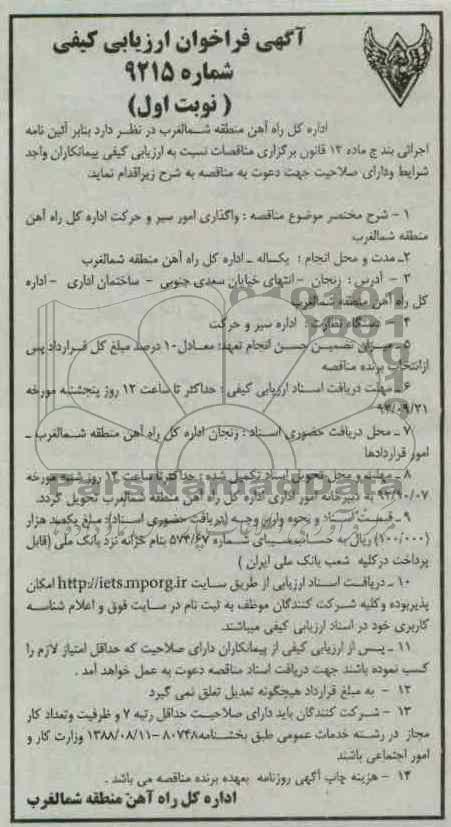 آگهی فراخوان ارزیابی کیفی
شماره ۹۲۱۵
( نوبت اول)
اداره کل راه آهن منطقه شمالغرب در نظر دارد بنابر آئین نامه
اجرائی بند ج ماده ۱۲ قانون برگزاری مناقصات نسبت به ارزیابی کیفی پیمانکاران واجد
شرایط ودارای صلاحیت جهت دعوت به مناقصه به شرح زیراقدام نماید.
۱ - شرح مختصر موضوع مناقصه : واگذاری امور سیر و حرکت اداره کل راه آهن
منطقه شمالغرب
۲ـ مدت و محل انجام : یکساله ـ اداره کل راه آهن منطقه شمالغرب
۳ - آدرس : زنجان - انتهای خیابان سعدی جنوبی - ساختمان اداری - اداره
کل راه آهن منطقه شمالغرب
۴ - دستگاه نظارت : اداره سیر و حرکت
۵ - میزان تضمین حسن انجام تعهد: معادل۱۰ درصد مبلغ کل قرارداد پس
ازانتخاب برنده مناقصه
۶ - مهلت دریافت اسناد ارزیابی کیفی : حداکثر تا ساعت ۱۲ روز پنجشنبه مورخه
۹۲/۰۹/۲۱
۷ ـ محل دریافت حضوری اسناد : زنجان اداره کل راه آهن منطقه شمالغرب ـ
امور قراردادها
۸ - مهلت و محل تحویل اسناد تکمیل شده : حداکثر تا ساعت ۱۴ روز شنبه مورخه
دبیرخانه امور اداری اداره کل راه آهن منطقه شمالغرب تحویل گردد.
۹ ـ قیمت اسناد و نحوه واریز وجه (دریافت حضوری اسناد): مبلغ یکصد هزار
(۱۰۰/۰۰۰) ریال به حساب سیبای شماره ۵۷۴/۶۷ بنام خزانه نزد بانک ملی (قابل
پرداخت درکلیه شعب بانک ملی ایران )
۱۰ - دریافت اسناد ارزیابی از طریق سایت http://iets.mporg.ir امکان
پذیربوده وکلیه شرکت کنندگان موظف به ثبت نام در سایت فوق و اعلام شناسه
کاربری خود در اسناد ارزیابی کیفی میباشند.
۱۱ ـ پس از ارزیابی کیفی از پیمانکاران دارای صلاحیت که حداقل امتیاز لازم را
کسب نموده باشند جهت دریافت اسناد مناقصه دعوت به عمل خواهد آمد .
۱۲ - به مبلغ قرارداد هیچگونه تعدیل تعلق نمی گیرد
۱۳ - شرکت کنندگان باید دارای صلاحیت حداقل رتبه ۷ و ظرفیت وتعداد کار
مجاز در رشته خدمات عمومی طبق بخشنامه۸۰۷۴۸ -۱۳۸۸/۰۸/۱۱ وزارت کار و
امور اجتماعی باشند
۱۴ - هزینه چاپ آگهی روزنامه بعهده برنده مناقصه می باشد .
اداره کل راه آهن منطقه شمالغرب
ParsNamadData